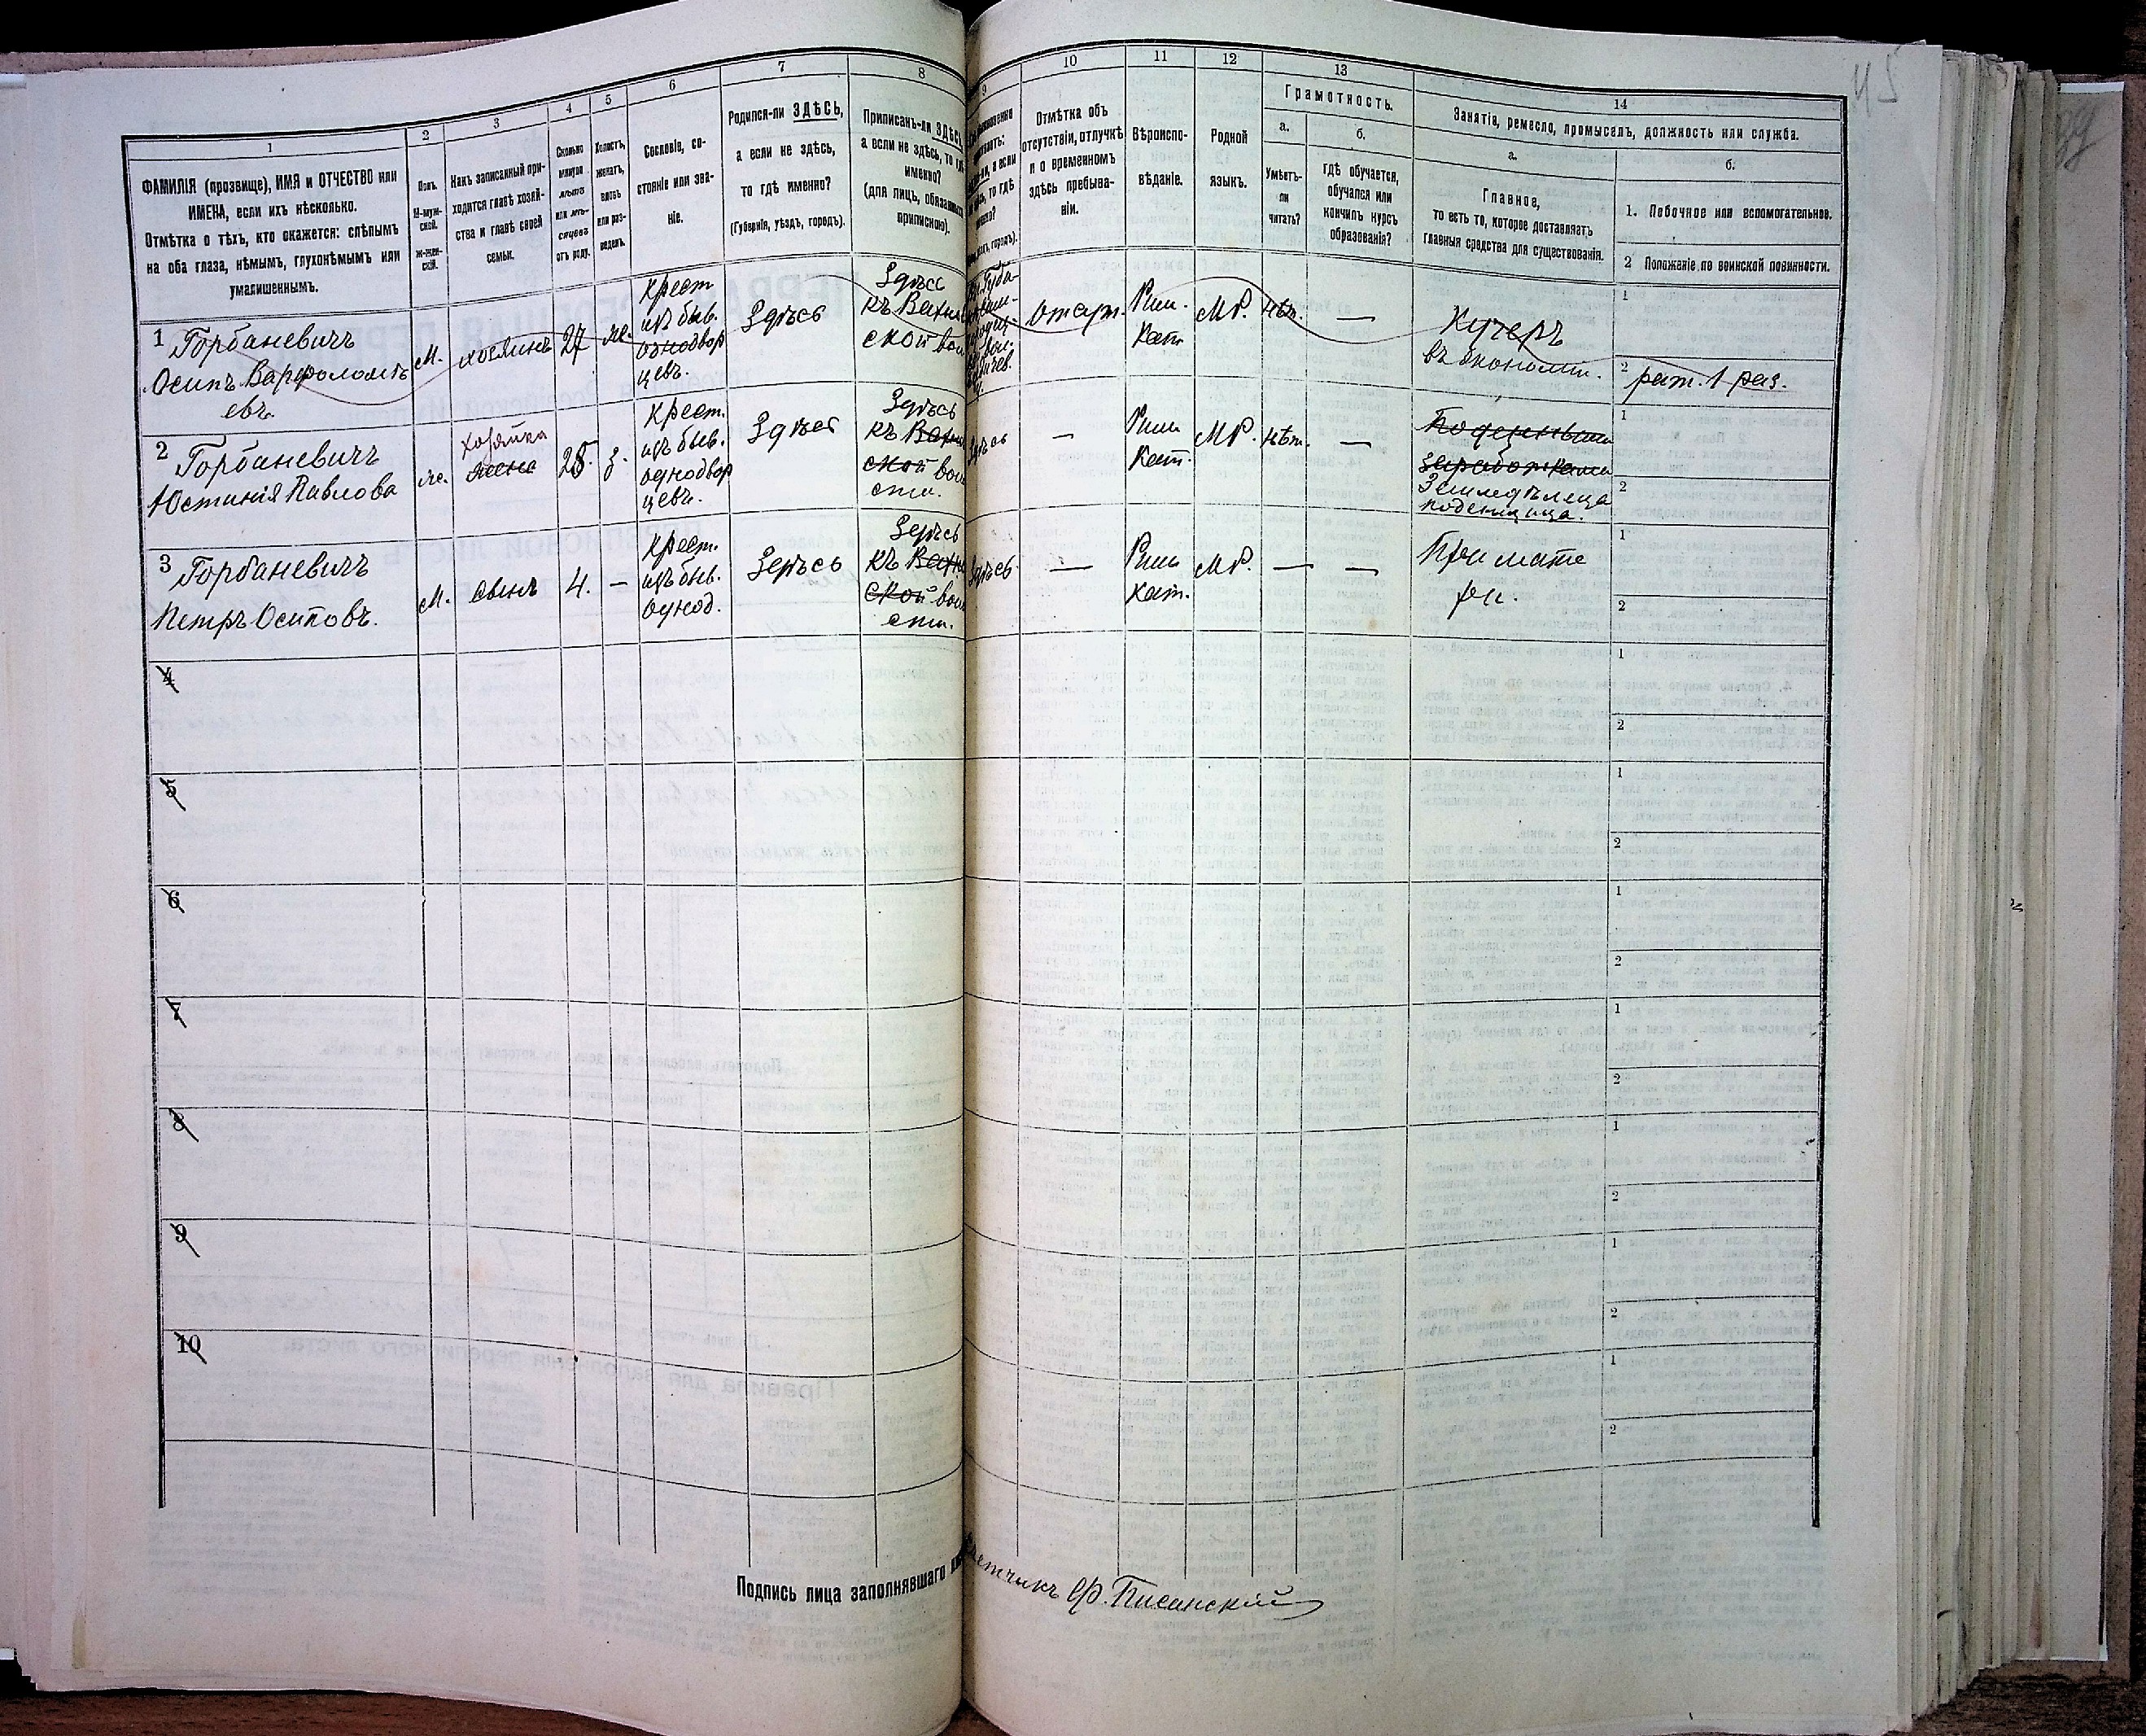 45
1
2
3
4
5
6
7
8
9
10
11
12
13
14
ФАМИЛІЯ (прозвище), ИМЯ и ОТЧЕСТВО или
ИМЕНА, если ихъ нѣсколько.
Отмѣтка о тѣхъ, кто окажется: слѣпымъ
на оба глаза, нѣмымъ, глухонѣмымъ или
умалишеннымъ.
Полъ.
М-муж-
ской.
Ж-жен-
скій.
Какъ записанный при-
ходится главѣ хозяй-
ства и главѣ своей
семьи.
Сколько
минуло
лѣтъ
или мѣ-
сяцевъ
отъ роду.
Холостъ,
женатъ,
вдовъ
или раз-
веденъ.
Сословіе, со-
стояніе или зва-
ніе.
Родился-ли ЗДѢСЬ,
а если не здѣсь,
то гдѣ именно?
(Губернія, уѣздъ, городъ).
Приписанъ-ли ЗДѢСЬ,
а если не здѣсь, то гдѣ
именно?
(для лицъ, обязанныхъ
припискою).
Отмѣтка объ
отсутствіи, отлучкѣ
и о временномъ
здѣсь пребыва-
ніи.
Вѣроиспо-
вѣданіе.
Родной
языкъ.
Грамотность.
а.
б.
Умѣетъ-
ли
читать?
гдѣ обучается,
обучался или
кончилъ курсъ
образованія?
Занятіе, ремесло, промыселъ, должность или служба.
а.
б.
Главное,
то есть то, которое доставляетъ
главныя средства для существованія.
1. Побочное или вспомогательное.
2 Положеніе по воинской повинности.
1 Горбаневичъ
Осипъ Варфоломѣ
евъ.
м.
хозяинъ
27
же.
крест
изъ быв.
однодвор
цевъ.
Здѣсь
Здѣсь
къ
ской вол
отлуч.
Рим.
Кат
МР.
нѣт.
—
Кучеръ
въ экономіи.
1
2
рат. 1 раз.
2 Горбаневичъ
Юстинія Павлова
же.
хозяйка
жена
28.
з.
Крест.
изъ быв.
однодвор
цевъ.
Здѣсь
Здѣсь
къ
ской вол
сти.
здѣсь
—
Рим
Кат.
МР.
нѣт.
—
Поденными
заработками
Земледѣлеца
поденщица.
1
2
3 Горбаневичъ
Петръ Осиповъ.
М.
сынъ
4.
—
Крест.
изъ быв.
однод.
Здѣсь
Здѣсь
къ
ской вол
сти.
здѣсь
—
Рим
кат.
МР.
—
—
При мате
ри.
1
2
4
1
2
5
1
2
6
1
2
7
1
2
8
1
2
9
1
2
10
1
2
Подпись лица заполнявшаго
Счетчикъ Ф. Писанскій